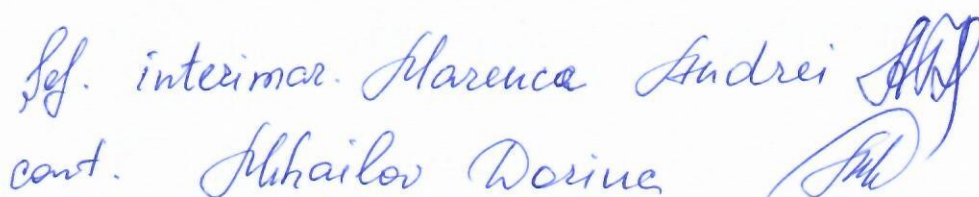 Șef. interimar. Marenca Andrei
cont. Mihailov Dorina